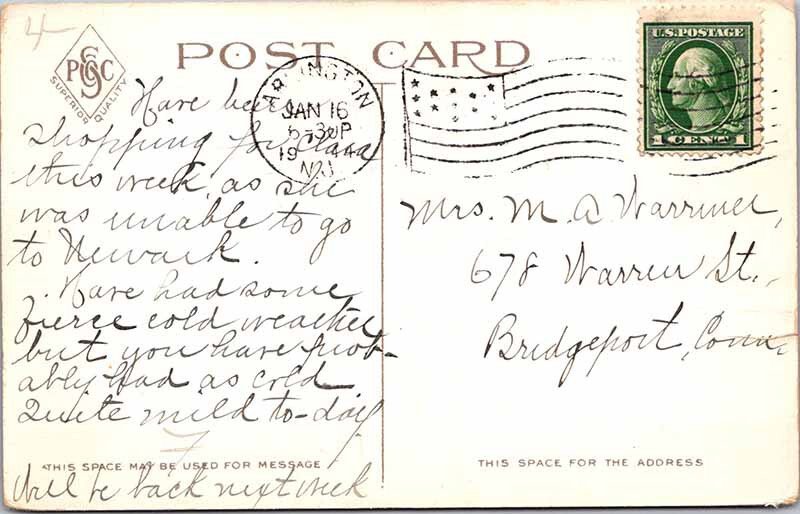 4
POST CARD
PSCC
SUPERIOR QUALITY
ARLINGTON
JAN 16
6-30P
19 14
N.J.
U.S. POSTAGE
1 CENT 1
Have been
shopping for Clara
this week, as she
was unable to go
to Newark.
Have had some
fierce cold weather
but you have prob-
ably had as cold
Quite mild to-day
THIS SPACE MAY BE USED FOR MESSAGE
Will be back next week
Mrs. M. A. Warriner,
678 Warren St.,
Bridgeport, Conn.
THIS SPACE FOR THE ADDRESS